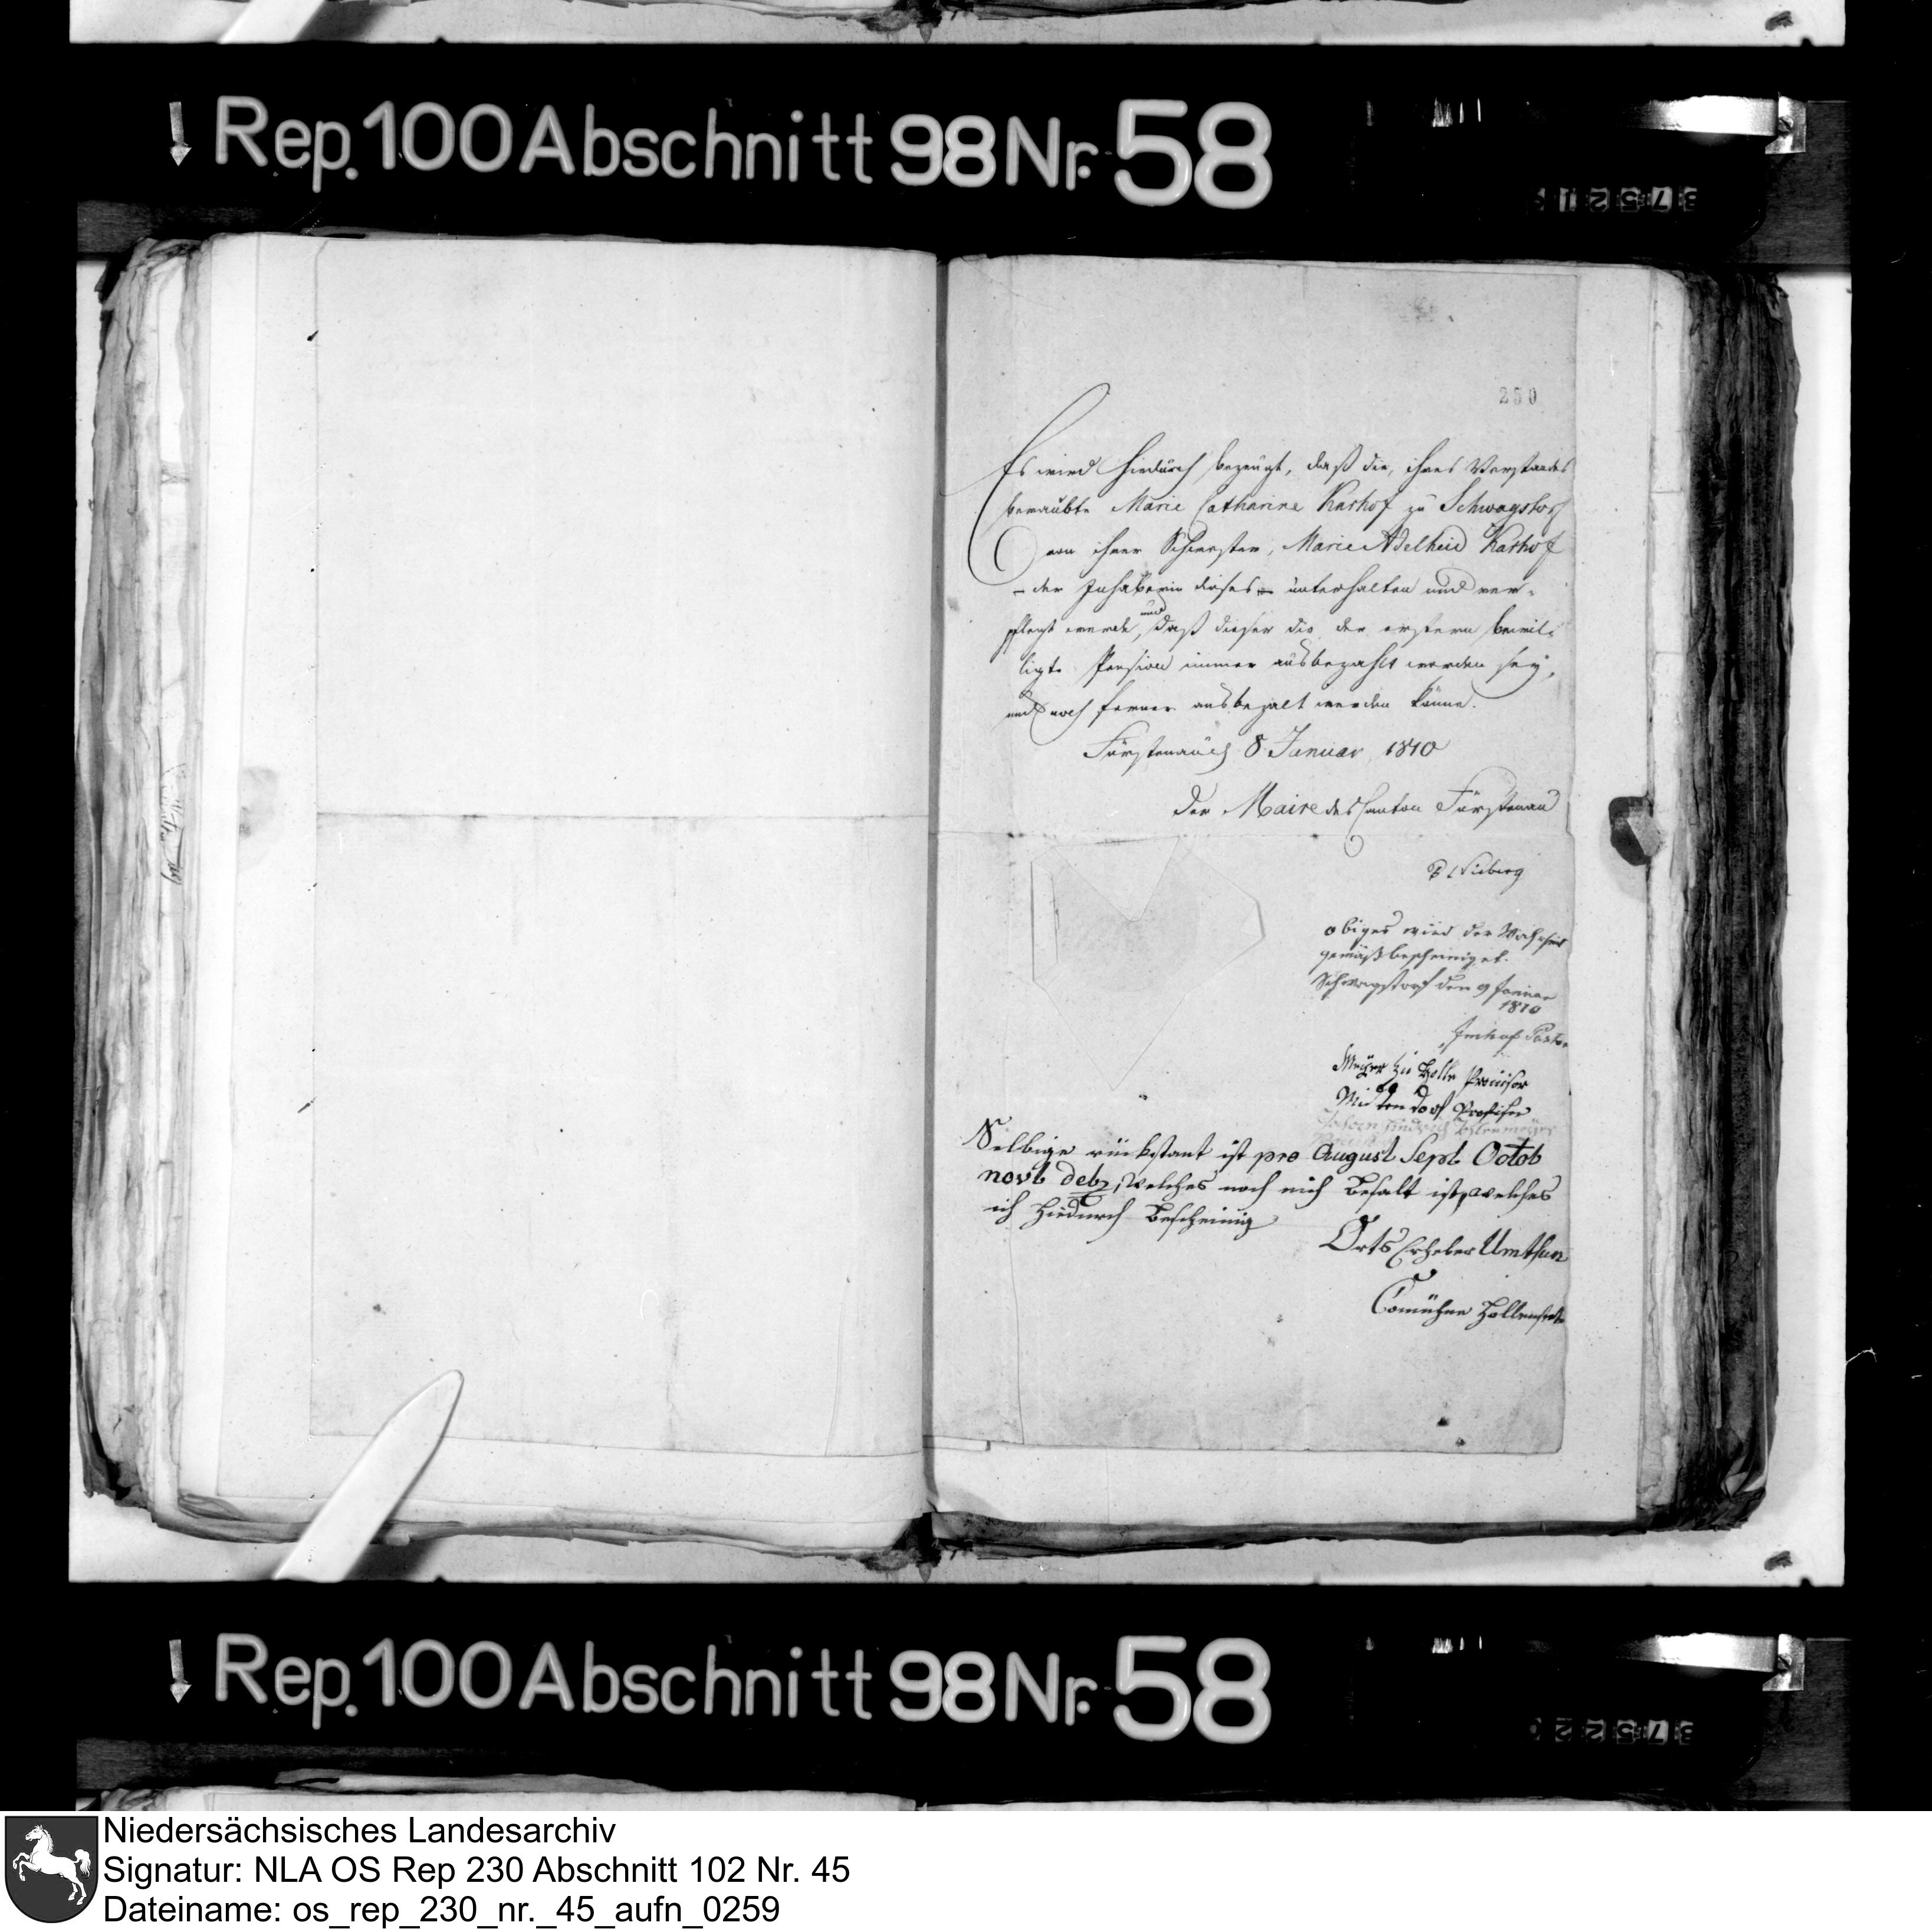 Rep. 100 Abschnitt 98 Nr. 58
37521
250
Es wird hiedurch bezeugt, daß die, ihres Verstandes
beraubte Marie Catharine Karhof zu Schwagstorf
von ihrer Schwester, Marie Adelheid Karhof
– der Inhaberin dieses – unterhalten und ver-
pflegt werde, und daß dieser die der erstern bewil-
ligte Pension immer ausbezahlt worden sey,
und noch ferner ausbezalt werden könne.
Fürstenau 8 Januar 1810
Der Maire des Canton Fürstenau
Nieberg
obiges wird der Wahrheit
gemäß bescheiniget.
Schwagstorf den 9 Januar
1810
Imhof Pastor
Meyer zu Holle Provisor
Mittendorf Provisor
Selbige rückstant ist pro August Sept Octob
novb debz, welches noch nich Bezalt ist, welches
ich hiedurch Bescheinig
Orts Erheber Umthun
Comühne Hollenstede
Rep. 100 Abschnitt 98 Nr. 58
37522
Niedersächsisches Landesarchiv
Signatur: NLA OS Rep 230 Abschnitt 102 Nr. 45
Dateiname: os_rep_230_nr._45_aufn_0259